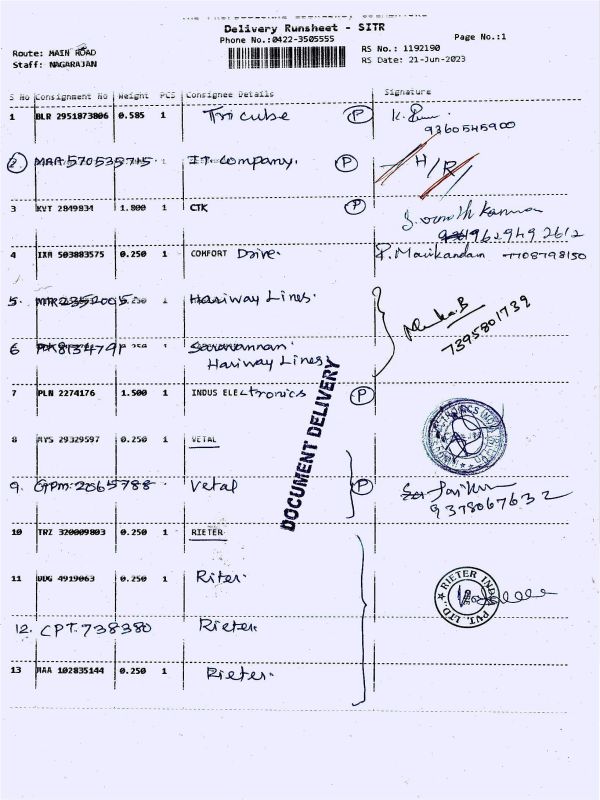 Delivery Runsheet - SITR
Phone No.:0422-3505555
Page No.:1
Route: MAIN ROAD
Staff: NAGARAJAN
RS No.: 1192190
RS Date: 21-Jun-2023
S No Consignment No Weight PCS Consignee Details Signature
1 BLR 2951873806 0.585 1 Tricube P
9360545900
2 MAA 570535715 I.T. Company. P H/R
3 KVT 2849834 1.800 1 CTK P
4 IXM 503883575 0.250 1 COMFORT Drive. P. Manikandan 7708798150
5. Hariway Lines.
7395801739
6 Saravannan
Hariway Lines
7 PLN 2274176 1.500 1 INDUS ELEctronics P
DOCUMENT DELIVERY
8 MYS 29329597 0.250 1 VETAL
9. GPM 2065788 Vetal P
9378067632
10 TRZ 320009803 0.250 1 RIETER
11 UDG 4919063 0.250 1 Riter.
RIETER INDIA PVT. LTD.
12. CPT. 738380 Rieter.
13 MAA 102835144 0.250 1 Rieter.